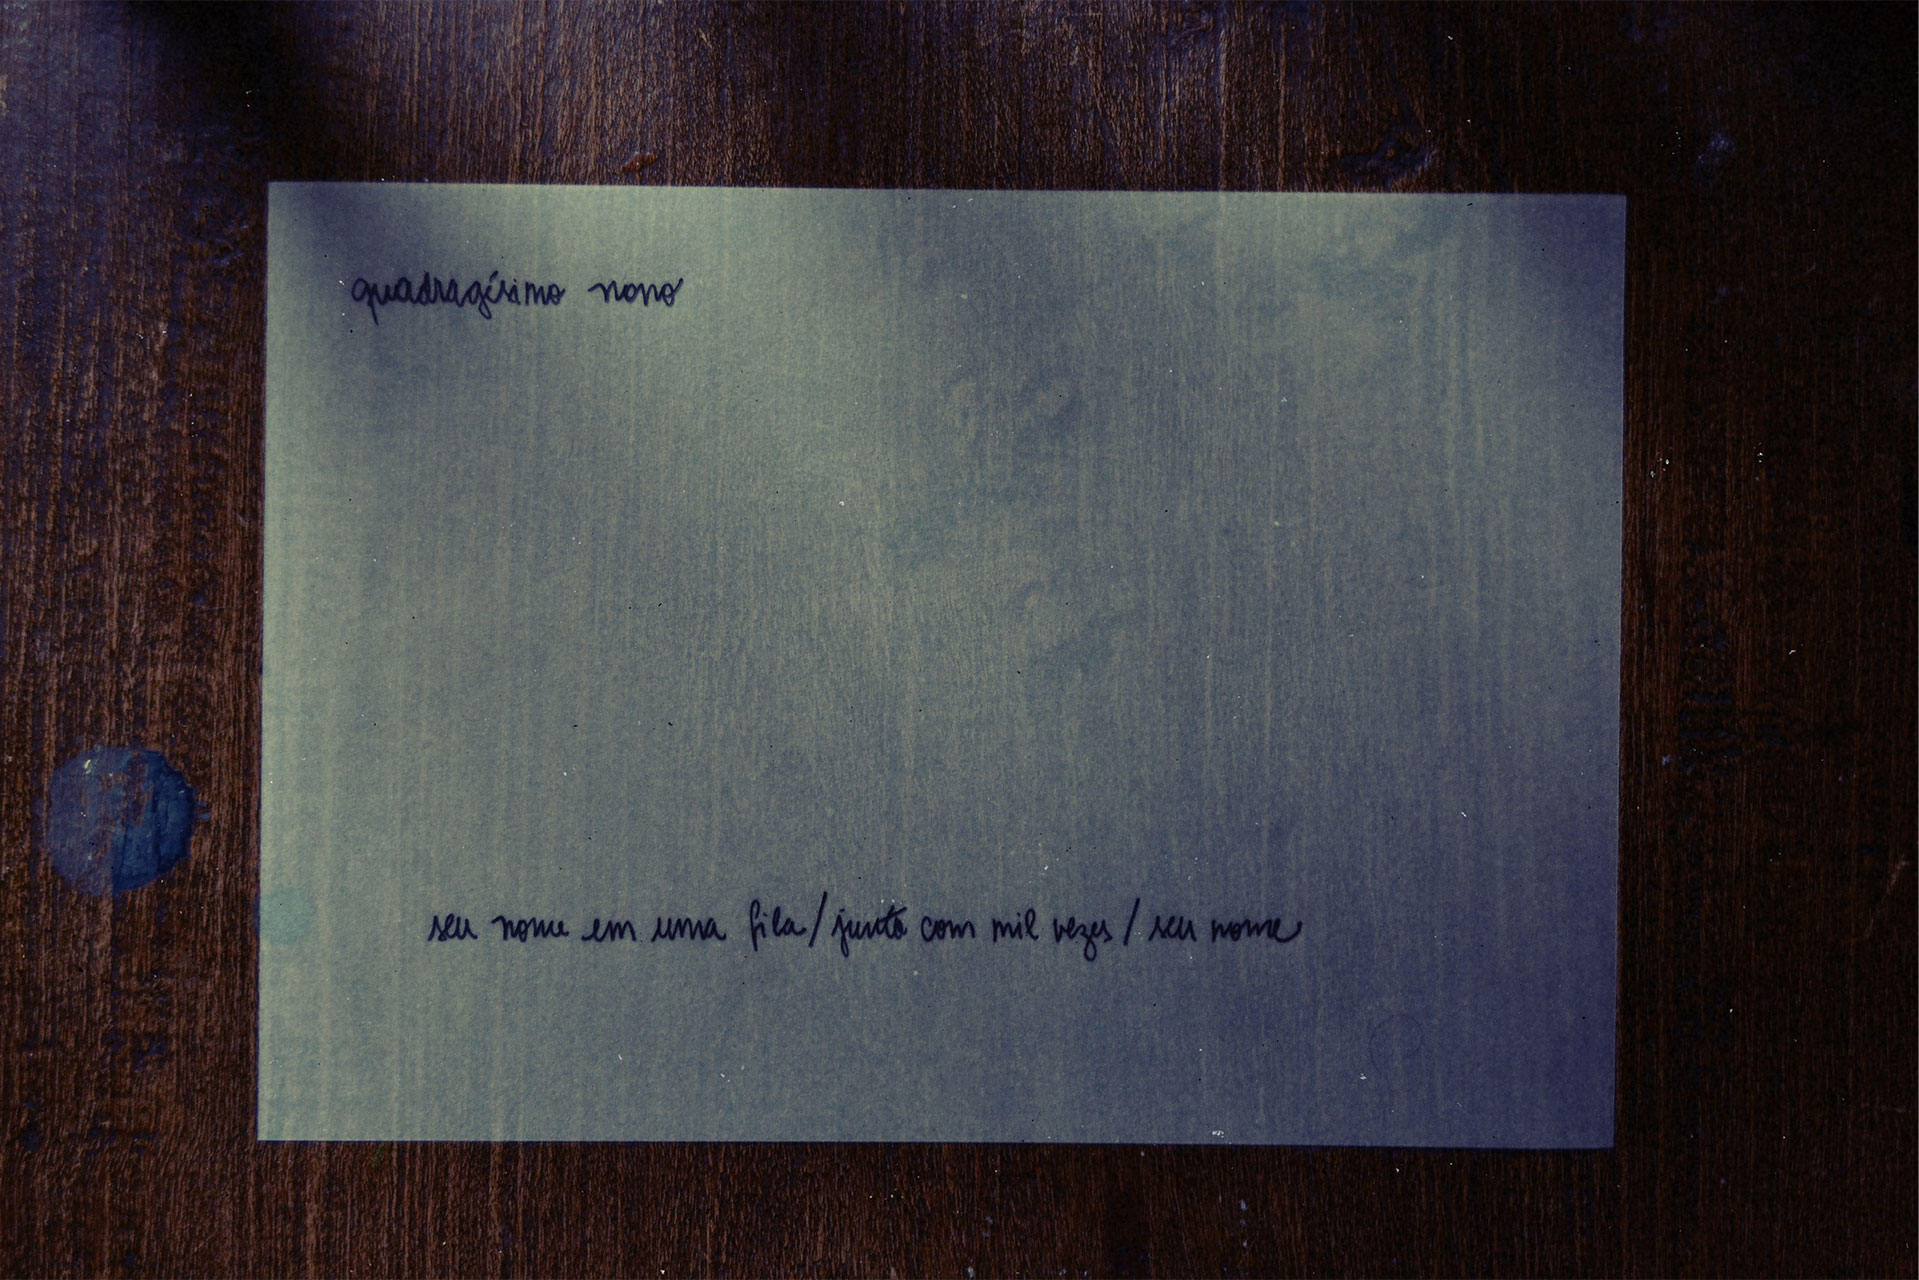 quadragésimo nono
seu nome em uma fila/junto com mil vezes/seu nome